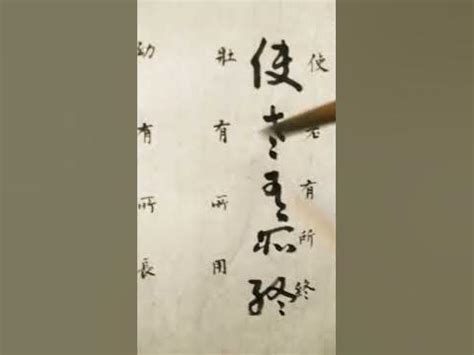 使老有所終
使老有所終
壯有所用
幼有所長